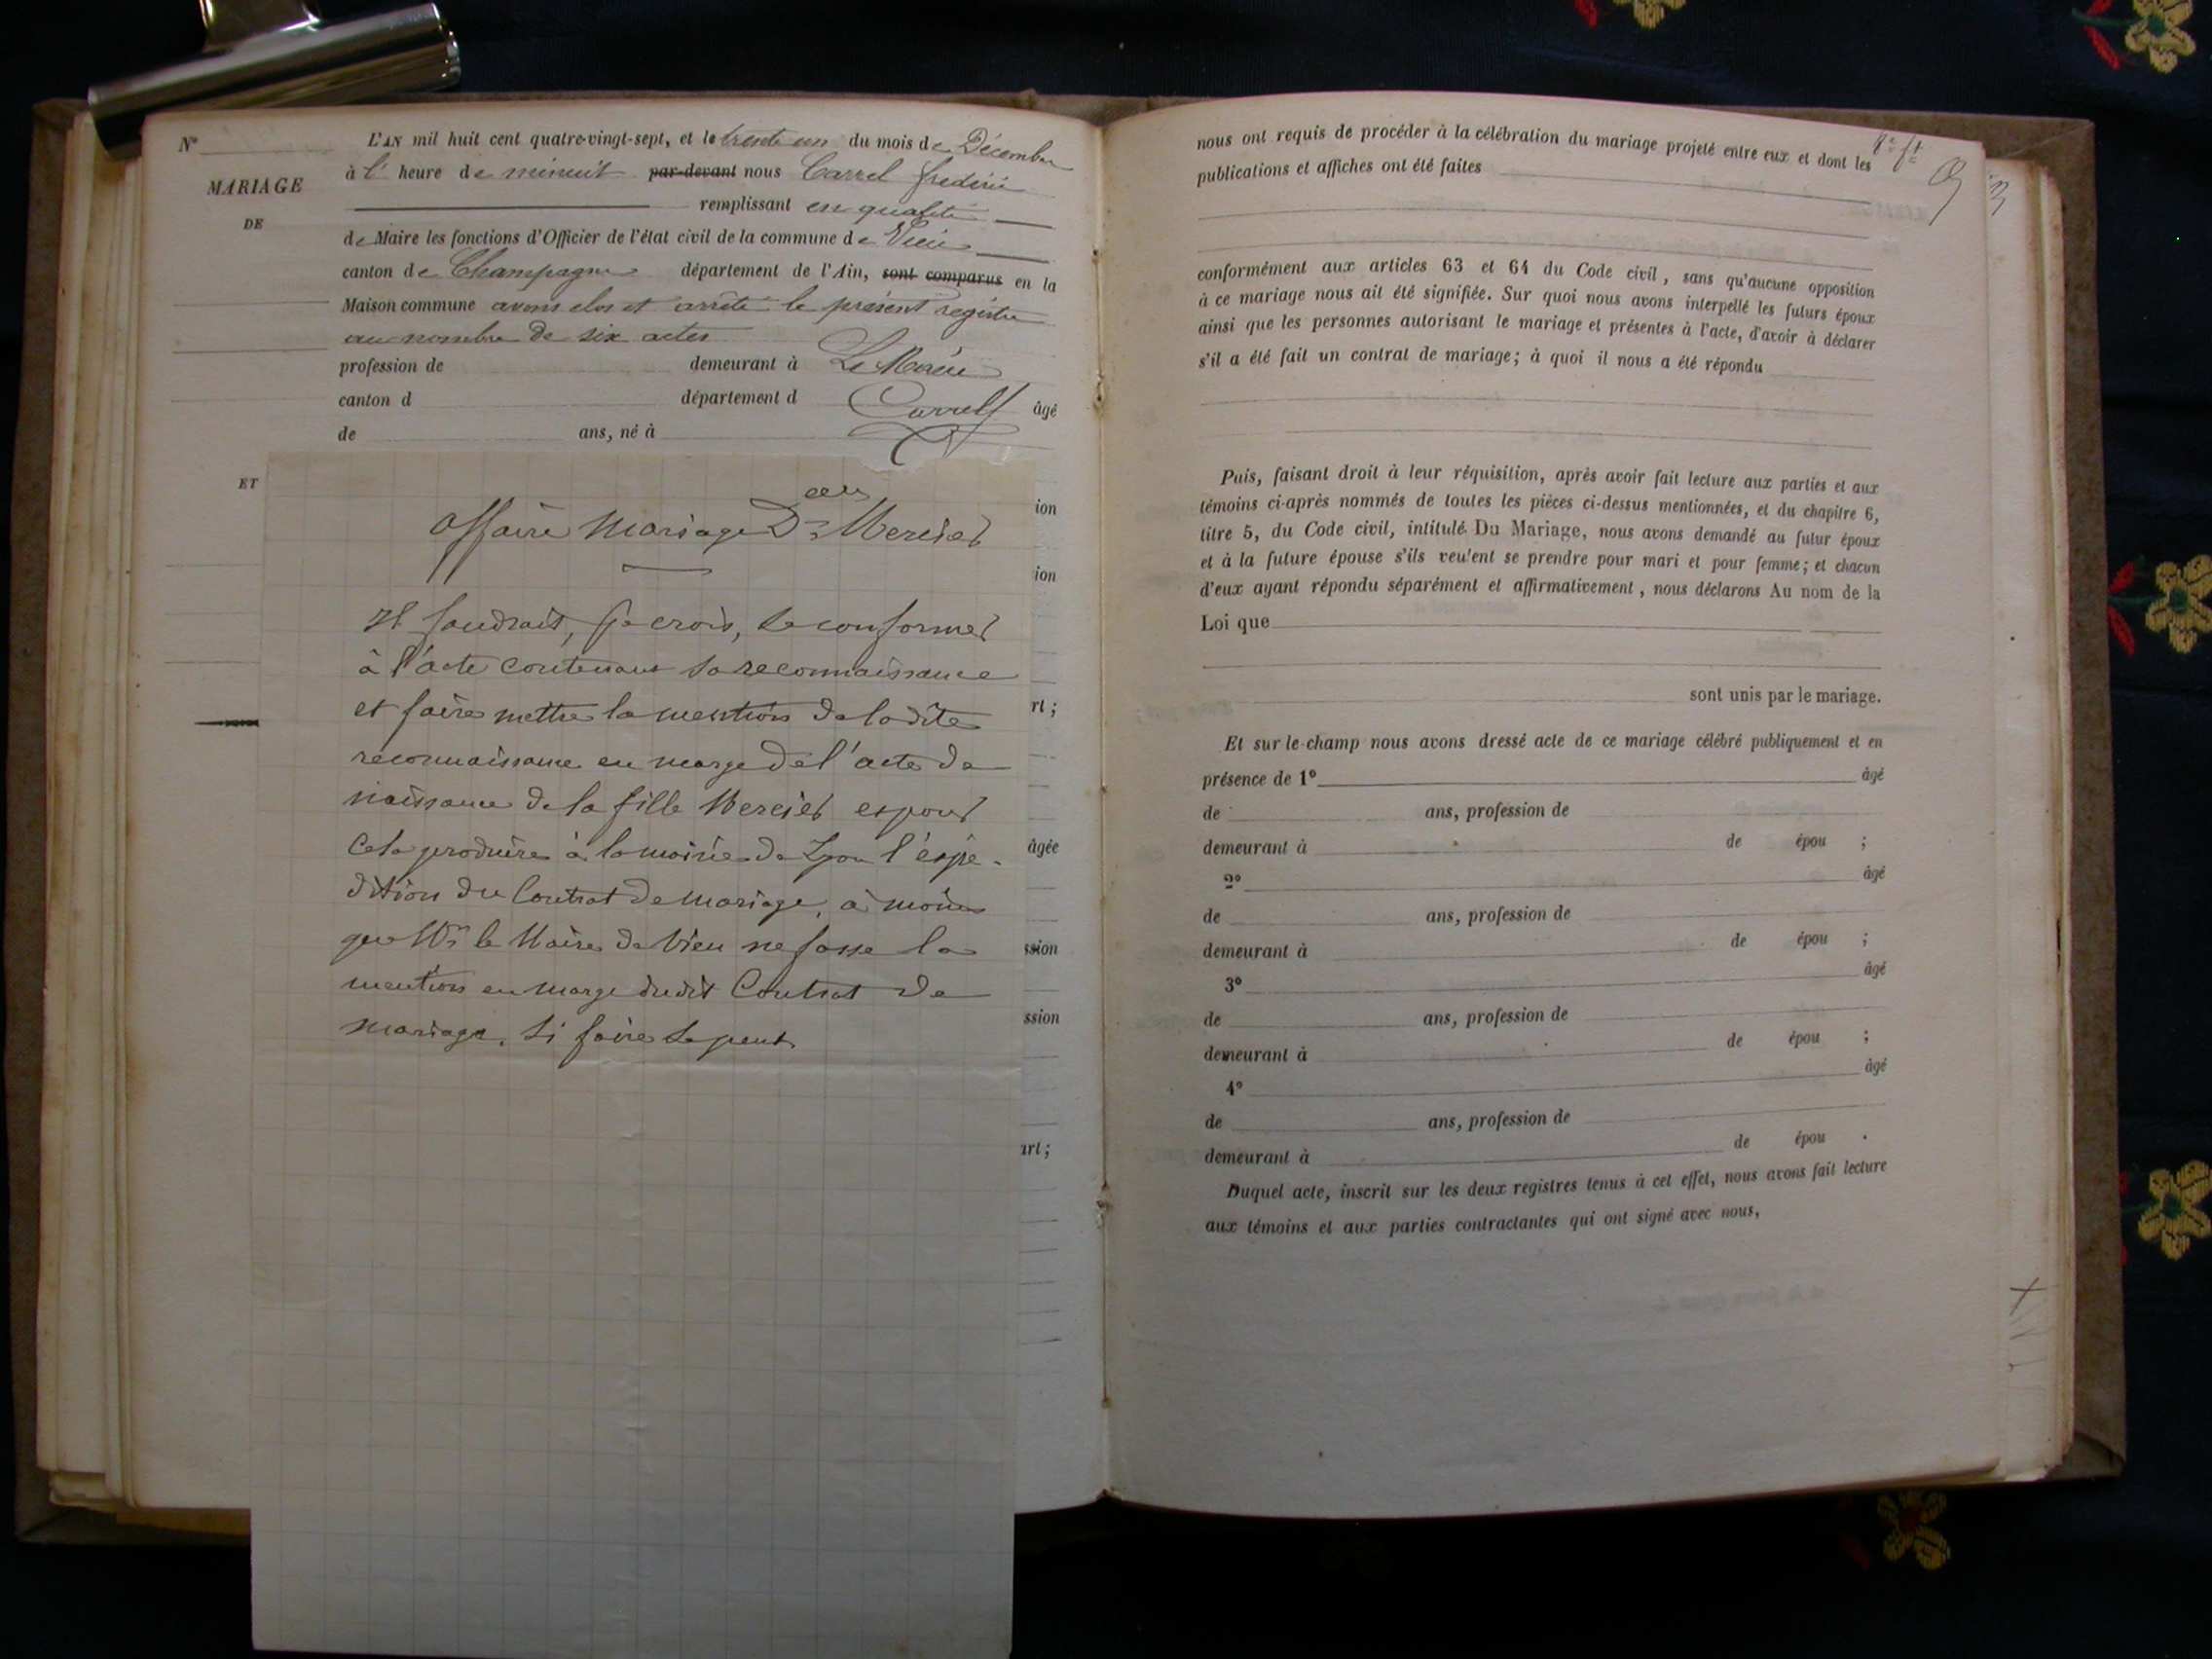 N°
MARIAGE
DE
ET
L'AN mil huit cent quatre-vingt-sept, et le trente un du mois de Décembre
à l' heure de minuit par-devant nous Carrel frédéric
remplissant en qualité
de Maire les fonctions d'Officier de l'état civil de la commune de Vieu
canton de Champagne département de l'Ain, sont comparus en la
Maison commune avons clos et arrêté le présent registre
au nombre de six actes
profession de demeurant à Le Maire
canton d département d Carrel f âgé
de ans, né à
Affaire Mariage Delle Mercier
Il faudrait, je crois, se conformer
à l'acte contenant sa reconnaissance
et faire mettre la mention de la dite
reconnaissance en marge de l'acte de
naissance de la fille Mercier et pour
cela produire à la mairie de Lyon l'expé-
dition du Contrat de Mariage, à moins
que Mr le Maire de Vieu ne fasse la
mention en marge dudit Contrat de
mariage, si faire se peut
ion
ion
rt ;
âgée
ssion
ssion
art ;
nous ont requis de procéder à la célébration du mariage projeté entre eux et dont les
publications et affiches ont été faites
conformément aux articles 63 et 64 du Code civil, sans qu'aucune opposition
à ce mariage nous ait été signifiée. Sur quoi nous avons interpellé les futurs époux
ainsi que les personnes autorisant le mariage et présentes à l'acte, d'avoir à déclarer
s'il a été fait un contrat de mariage ; à quoi il nous a été répondu
Puis, faisant droit à leur réquisition, après avoir fait lecture aux parties et aux
témoins ci-après nommés de toutes les pièces ci-dessus mentionnées, et du chapitre 6,
titre 5, du Code civil, intitulé Du Mariage, nous avons demandé au futur époux
et à la future épouse s'ils veulent se prendre pour mari et pour femme ; et chacun
d'eux ayant répondu séparément et affirmativement, nous déclarons Au nom de la
Loi que
sont unis par le mariage.
Et sur-le-champ nous avons dressé acte de ce mariage célébré publiquement et en
présence de 1° âgé
de ans, profession de
demeurant à de épou ;
2° âgé
de ans, profession de
demeurant à de épou ;
3° âgé
de ans, profession de
demeurant à de épou ;
4° âgé
de ans, profession de
demeurant à de épou .
Duquel acte, inscrit sur les deux registres tenus à cet effet, nous avons fait lecture
aux témoins et aux parties contractantes qui ont signé avec nous,